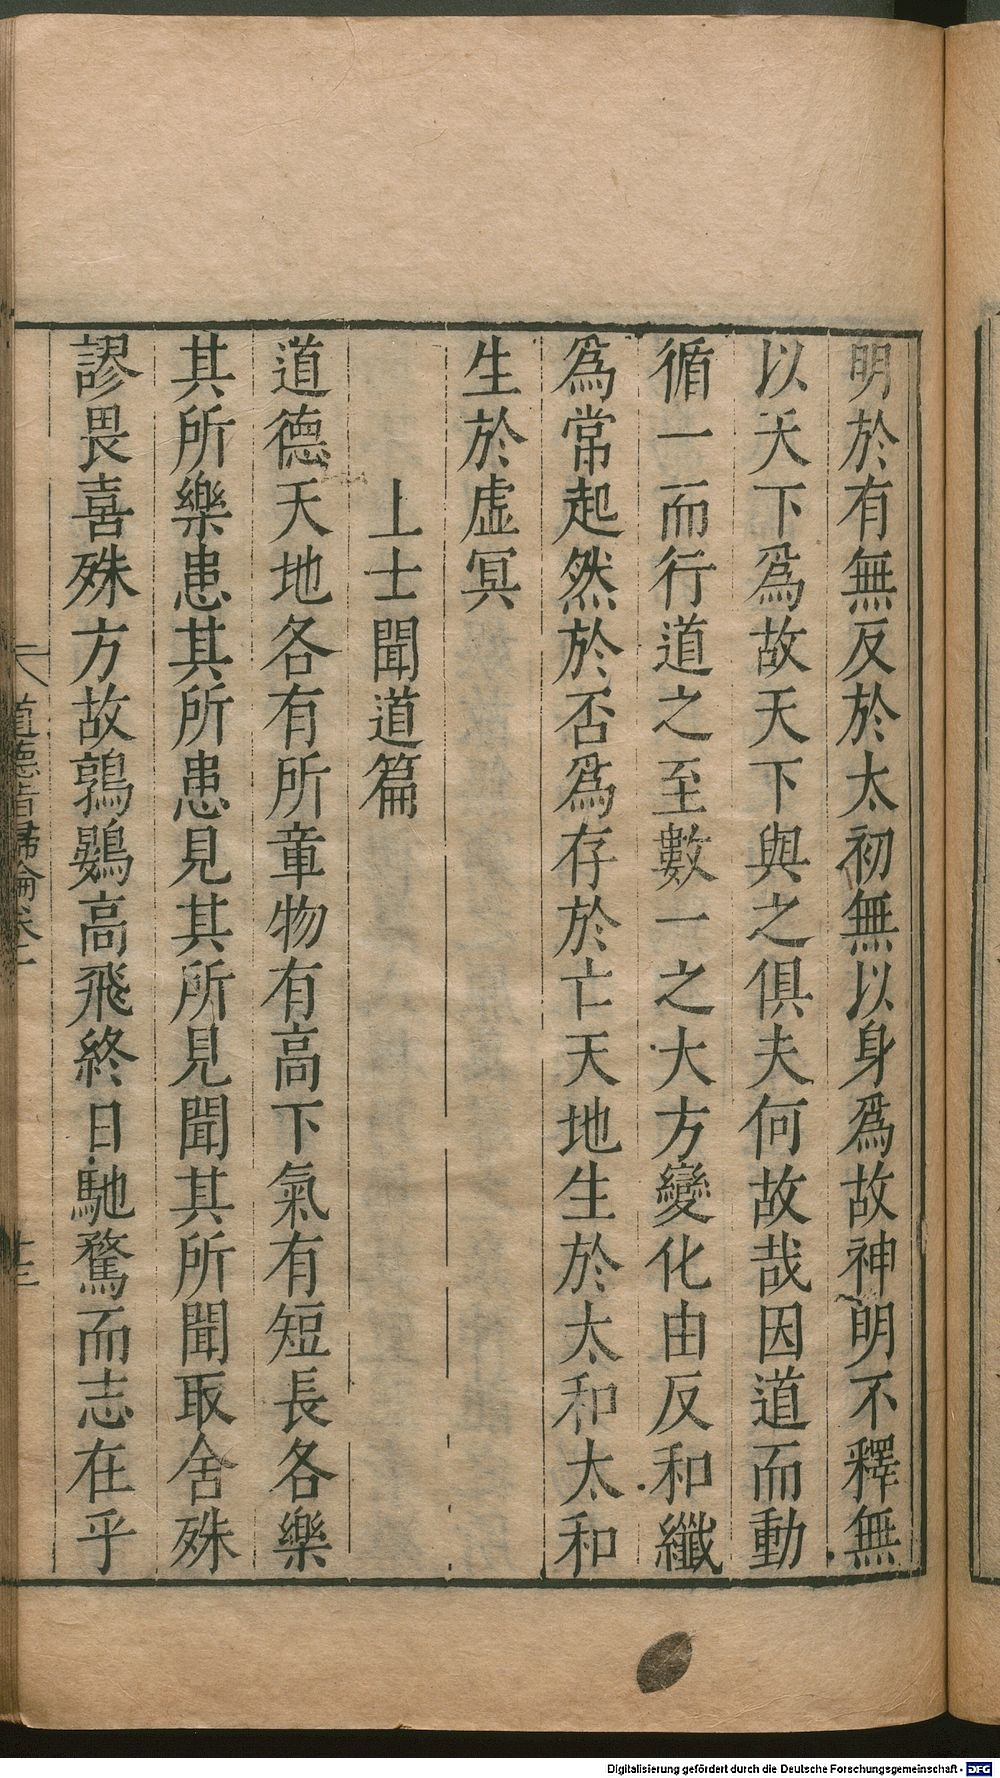 明於有無反於太初無以身爲故神明不釋無
以天下爲故天下與之俱夫何故哉因道而動
循一而行道之至數一之大方變化由反和纖
爲常起然於否爲存於亡天地生於太和太和
生於虛冥
上士聞道篇
道德天地各有所章物有高下氣有短長各樂
其所樂患其所患見其所見聞其所聞取舍殊
謬畏喜殊方故鶉鷃高飛終日馳騖而志在乎
道德指歸論卷一
十三
Digitalisierung gefördert durch die Deutsche Forschungsgemeinschaft - DFG